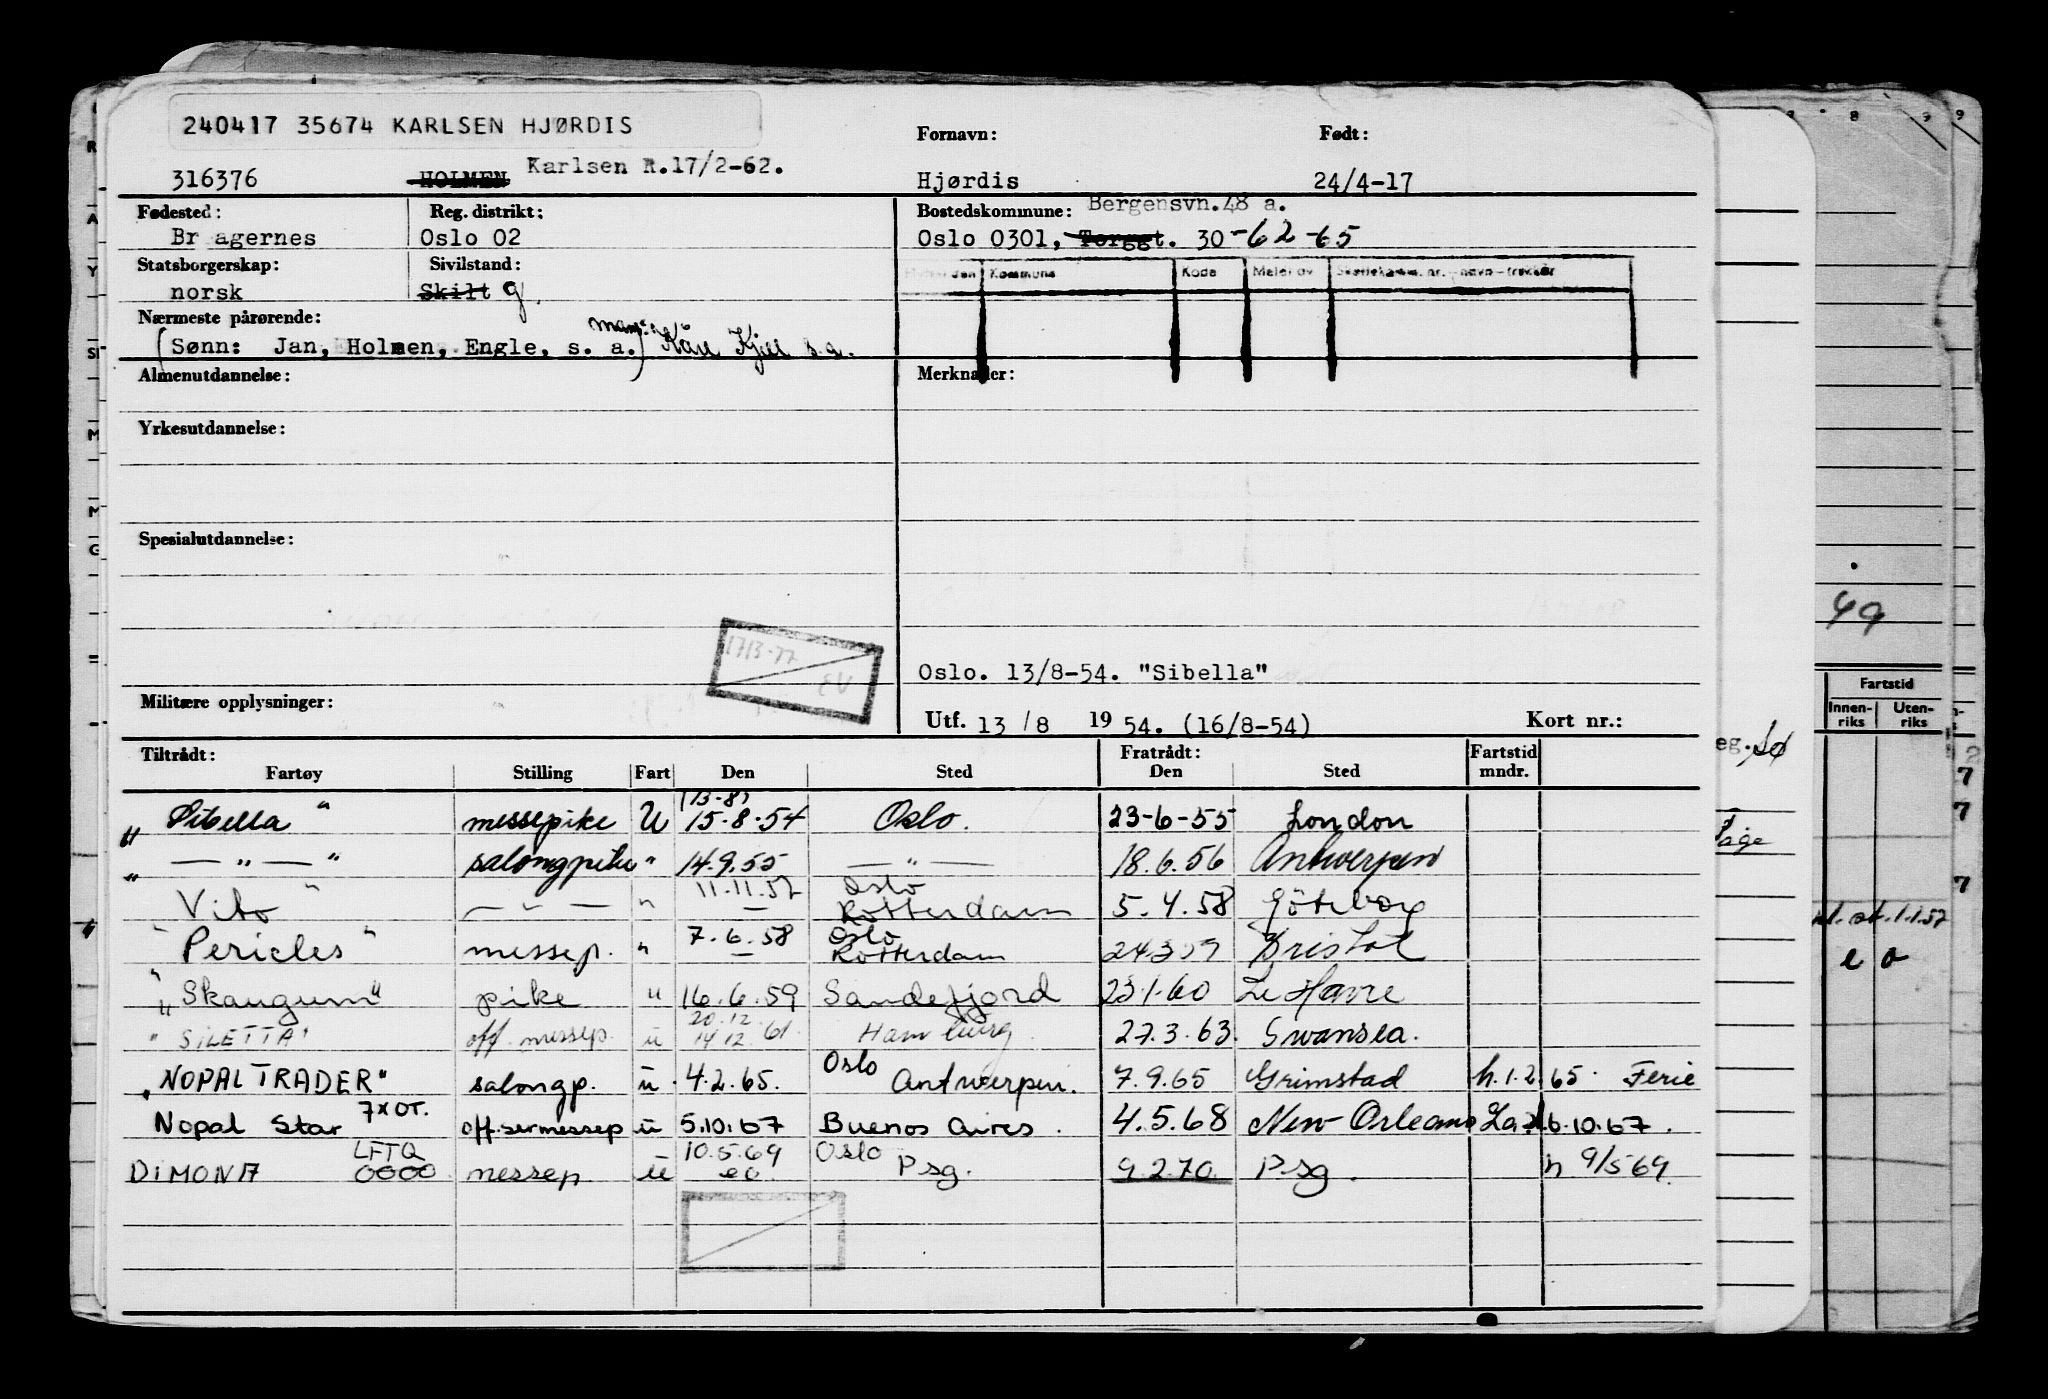 240417 35674 KARLSEN HJØRDIS
Fornavn: Født:
316376 HOLMEN Karlsen R.17/2-62. Hjørdis 24/4-17
Fødested: Reg. distrikt: Bostedskommune: Bergensvn.48 a.
Br agernes Oslo 02 Oslo 0301, Torggt. 30-62-65
Statsborgerskap: Sivilstand:
Kommune Kode
norsk Skilt g.
Nærmeste pårørende:
(Sønn: Jan, Holmen, Engle, s. a.) Kåre Kjell s.a.
Almenutdannelse: Merknader:
Yrkesutdannelse:
Spesialutdannelse:
17/3-77
EV
Oslo. 13/8-54. "Sibella"
Militære opplysninger:
Utf. 13 /8 19 54. (16/8-54) Kort nr.:
Tiltrådt: Fratrådt: Fartstid
Fartøy Stilling Fart Den Sted Den Sted mndr.
(13-8)
"Sibella" messepike U 15.8.54 Oslo. 23-6-55 London
" — " — " salongpike " 14.9.55 — " — 18.6.56 Antwerpen
11.11.57 Oslo
"Vito" — " — " — Rotterdam 5.4.58 Göteborg
7.6.58 Oslo
"Pericles" messep. " — Rotterdam 24.3.59 Bristol
"Skaugum" pike " 16.6.59 Sandefjord 23.1.60 Le Havre
20.12
"SILETTA" off. messep. u 14.12.61 Hamburg 27.3.63. Swansea.
Oslo
"NOPAL TRADER" salongp. u. 4.2.65. Antwerpen. 7.9.65 Grimstad h.1.2.65. Ferie
7XOT.
Nopal Star off.sermessep u 5.10.67 Buenos Aires. 4.5.68 New Orleans La. 6.10.67.
LFTQ 10.5.69 Oslo
DIMONA 0000 messep u eo. Psg. 9.2.70. Psg. h 9/5 69.
49
Fartstid
Innen-riks Uten-riks
eg. Sø
e o